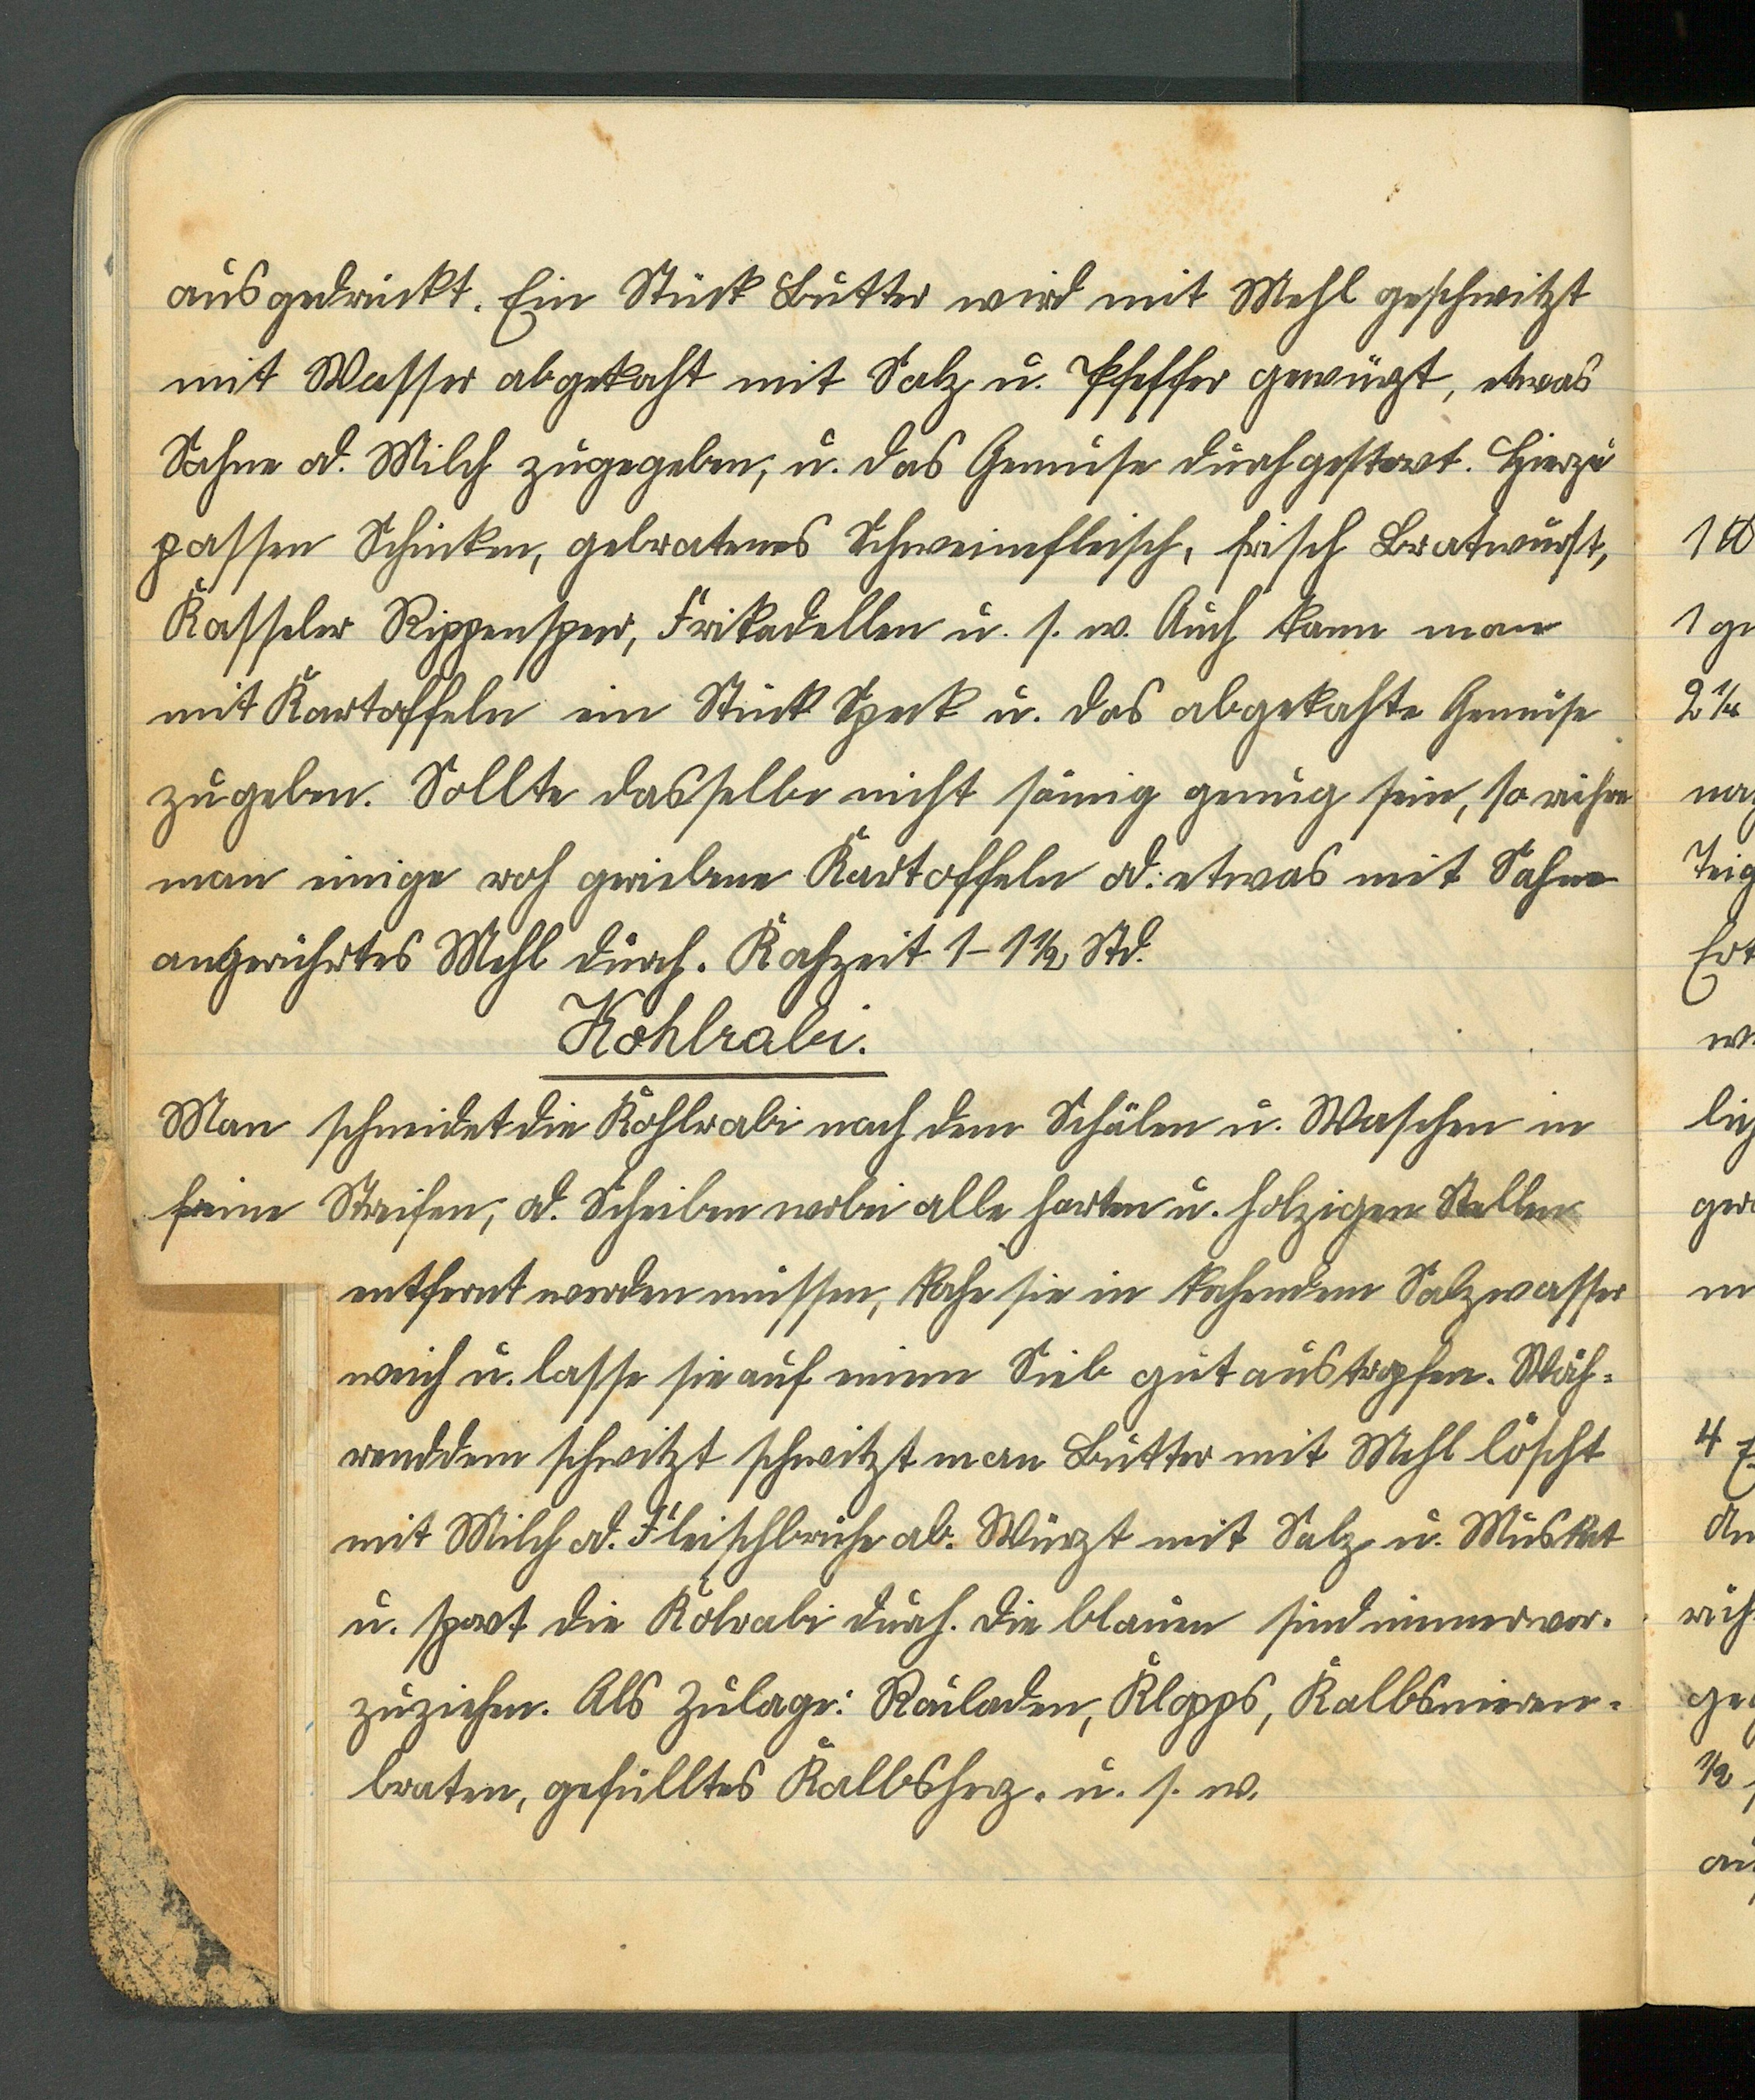 ausgedrückt. Ein Stück Butter wird mit Mehl geschwitzt
mit Wasser abgekocht mit Salz u. Pfeffer gewürzt, etwas
Sahne od. Milch zugegeben, u. das Gemüse durchgestovt. Hierzu
passen Schinken, gebratenes Schweinefleisch, frisch Bratwurst,
Kasseler Rippensper, Frikadellen u. s. w. Auch kann man
mit Kartoffeln ein Stück Speck u. das abgekochte Gemüse
zugeben. Sollte dasselbe nicht sämig genug sein, so rühre
man einige roh geriebene Kartoffeln od. etwas mit Sahne
angerührtes Mehl durch. Kochzeit 1-1½ Std.
Kohlrabi.
Man schneidet die Kohlrabi nach dem Schälen u. Waschen in
feine Streifen, od. Scheiben wobei alle harten u. holzigen Stellen
entfernt werden müssen, koche sie in kochendem Salzwasser
weich u. lasse sie auf einem Sieb gut austropfen. Wäh-
renddem schwitzt schwitzt man Butter mit Mehl löscht
mit Milch od. Fleischbrühe ab. Würzt mit Salz u. Muskat
u. die Kolrabi durch. Die blauen sind immer vor-
zuziehen. Als Zulage: Rouladen, Klopps, Kalbsnieren-
braten, gefülltes Kalbsherz. u. s. w.
1
1 ge
2¼
Teig
w.
lich
ger
m
4
rüh
geg
½
au